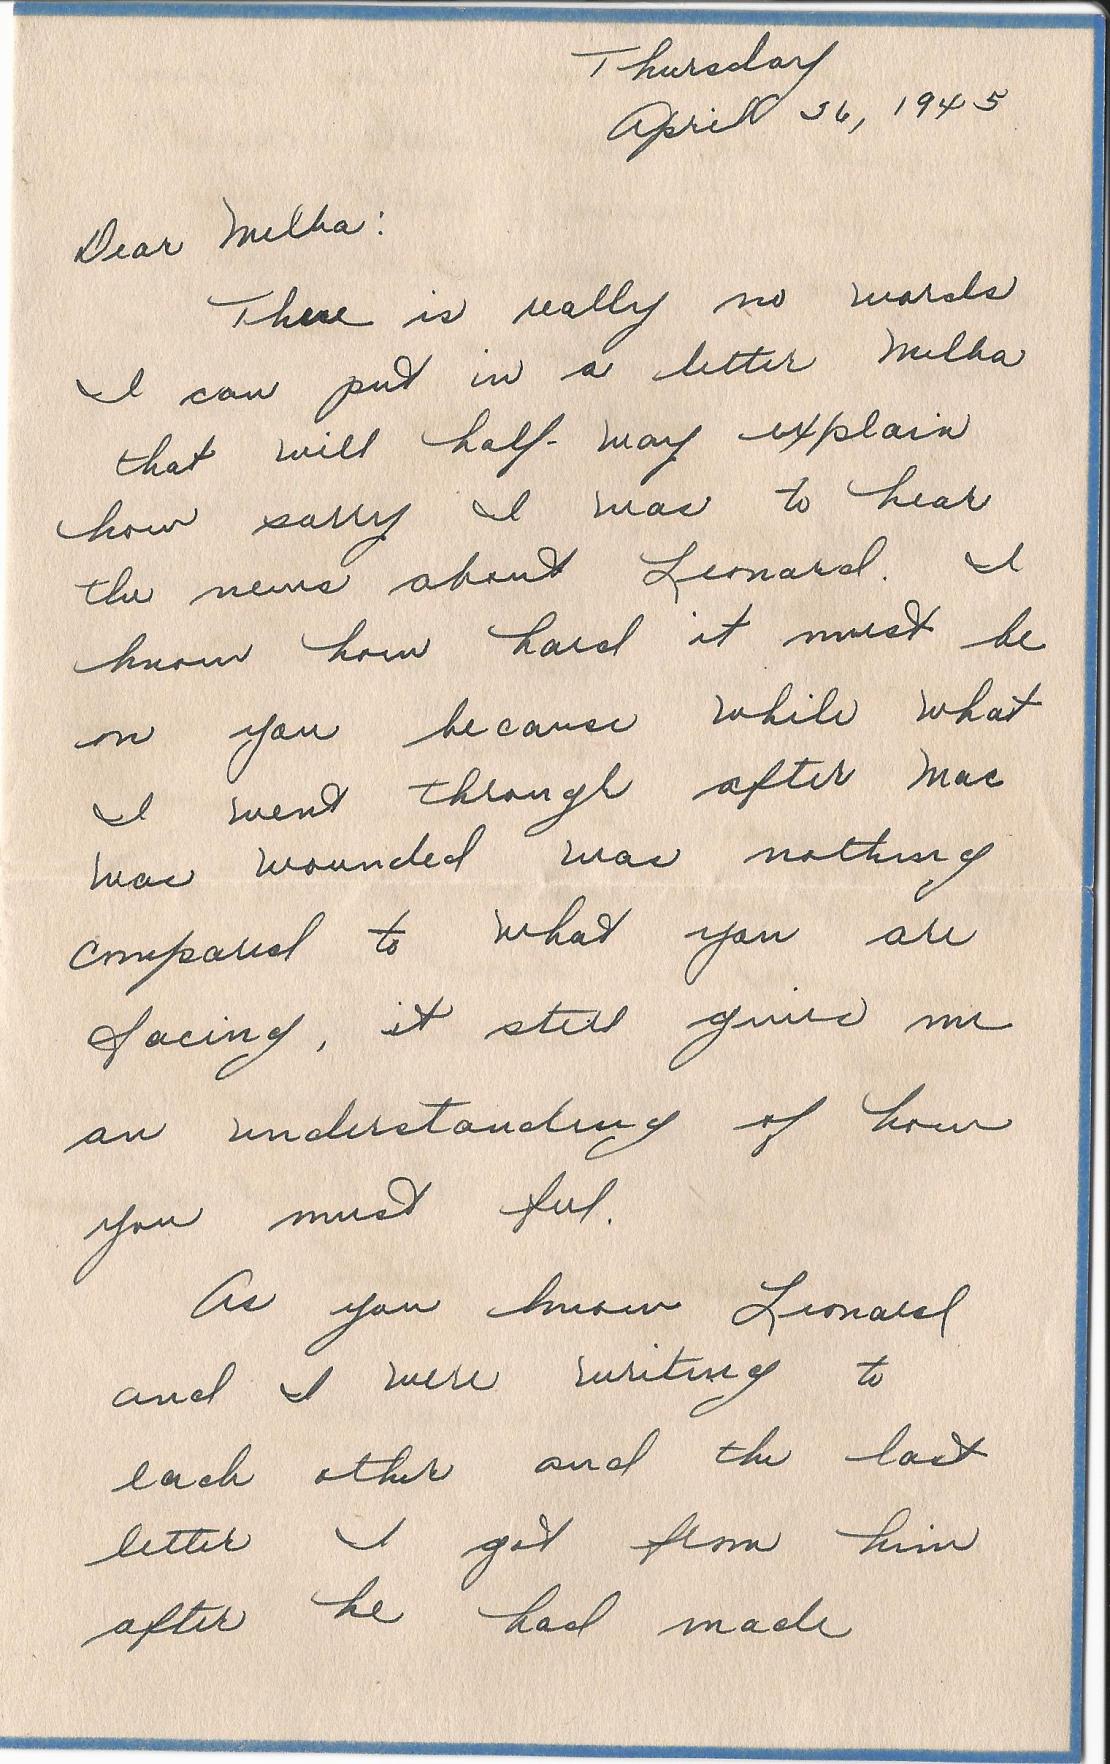 Thursday
April 26, 1945
Dear Melba:
There is really no words
I can put in a letter Melba
that will half-way explain
how sorry I was to hear
the news about Leonard. I
know how hard it must be
on you because while what
I went through after Mac
was wounded was nothing
compared to what you are
facing, it still gives me
an understanding of how
you must feel.
As you know Leonard
and I were writing to
each other and the last
letter I got from him
after he had made